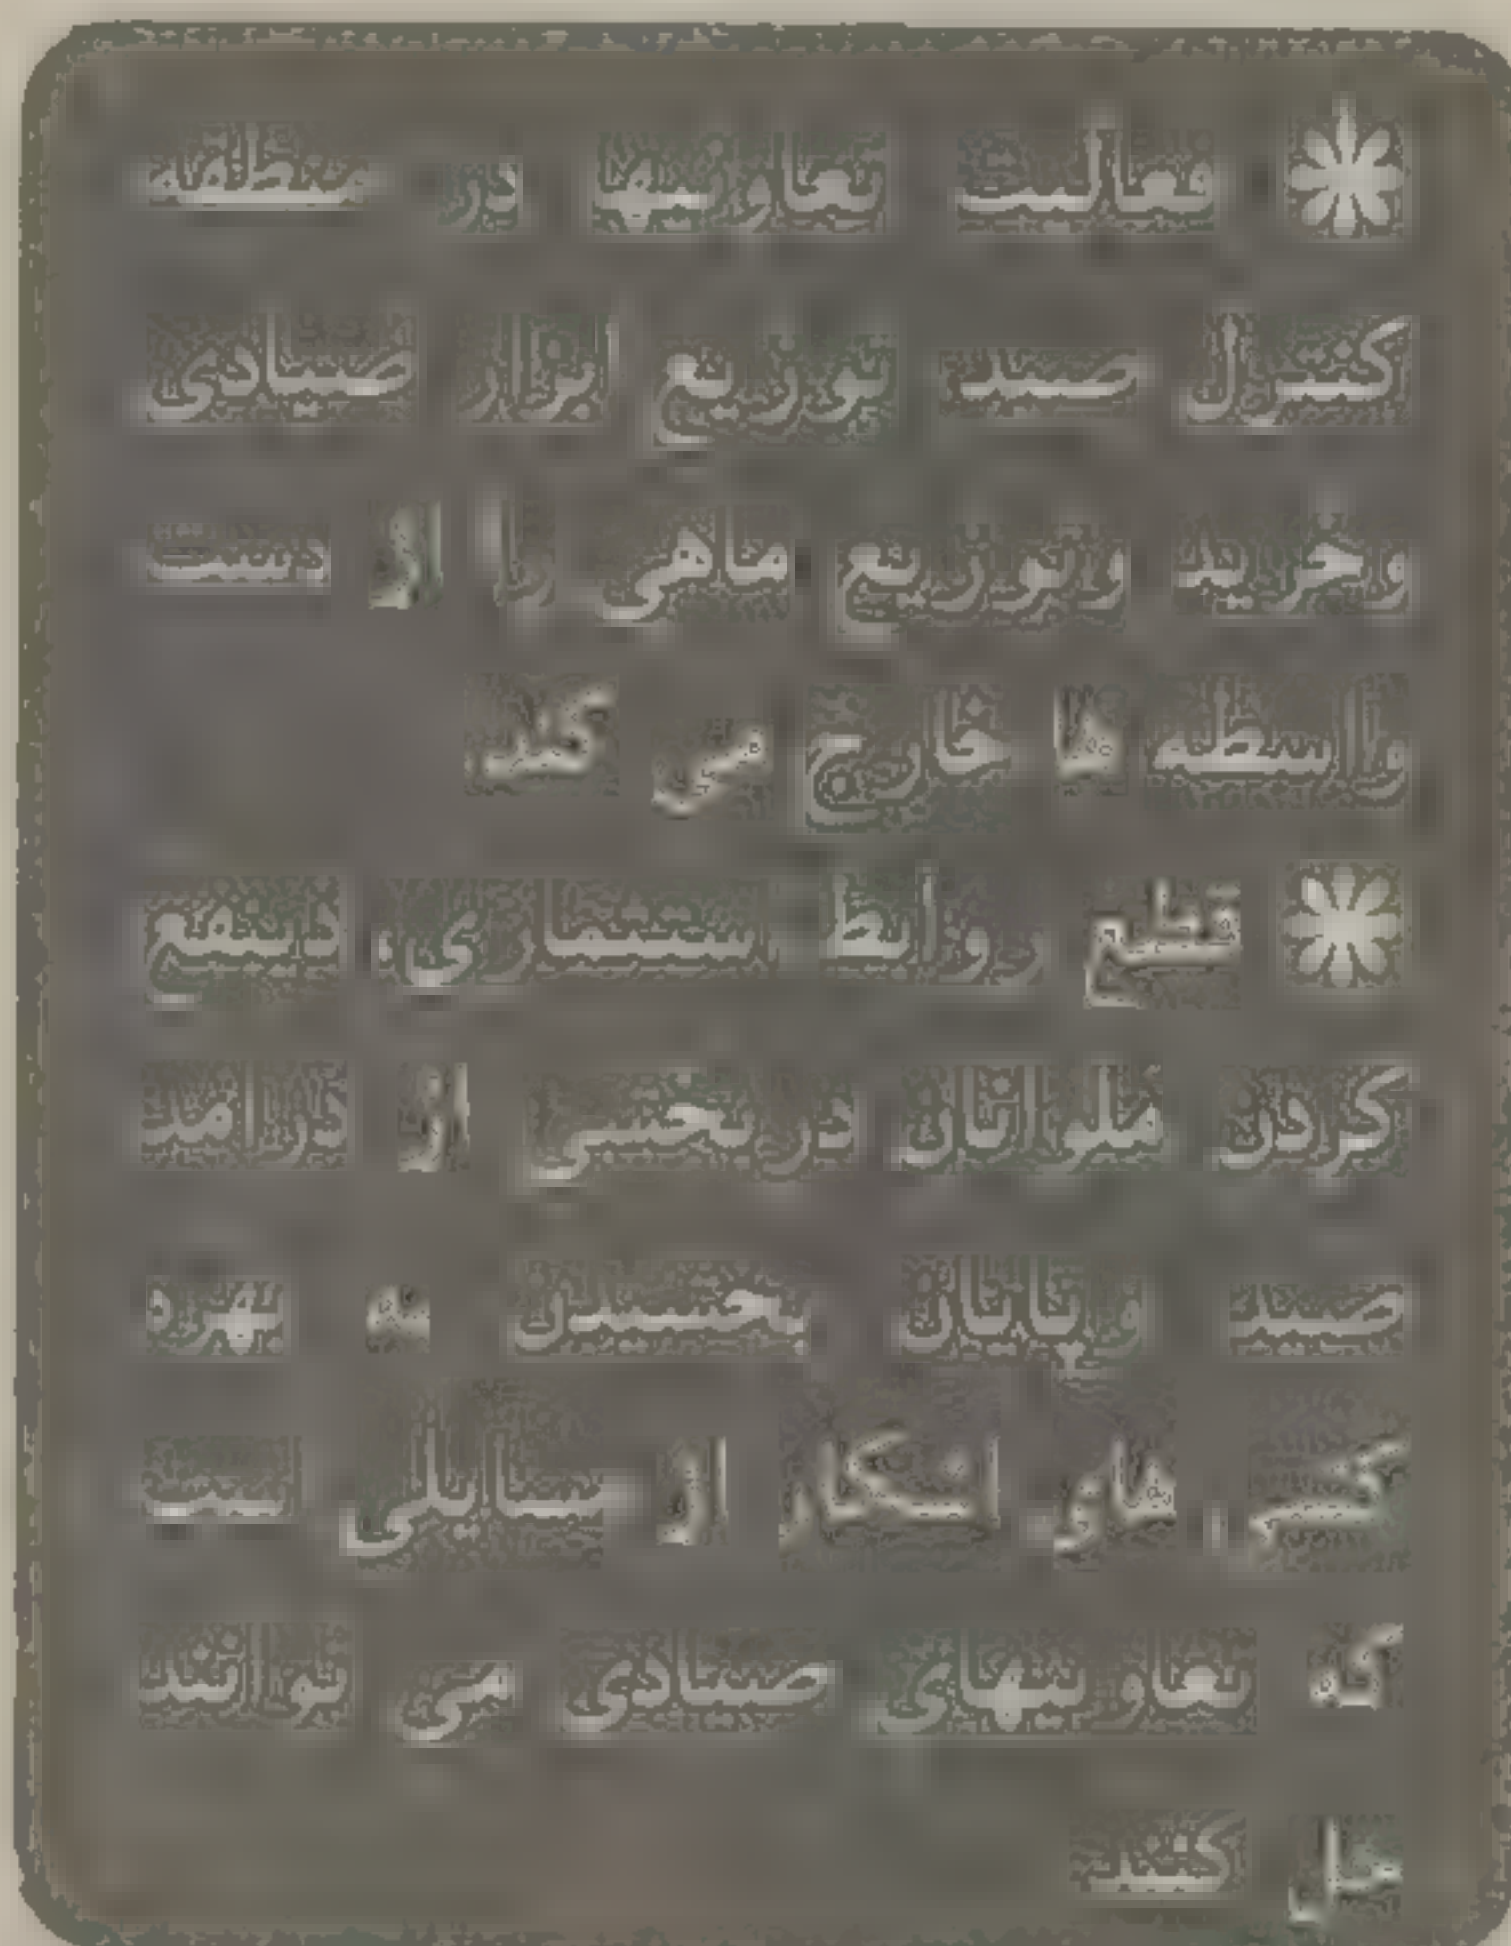 * فعالیت تعاونیها در منطقه
کنترل صید توزیع ابزار صیادی
وخرید وتوزیع ماهی را از دست
واسطه ها خارج می کند
* قطع روابط استثماری، ذینفع
کردن ملوانان درنحوه از درآمد
صید وپایان بخشیدن به بهره
کشی، از مسایلی است
که تعاونیهای صیادی می توانند
حل کنند